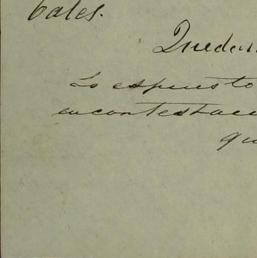 bales.
Quedan
Lo espuesto
en contestac
qu